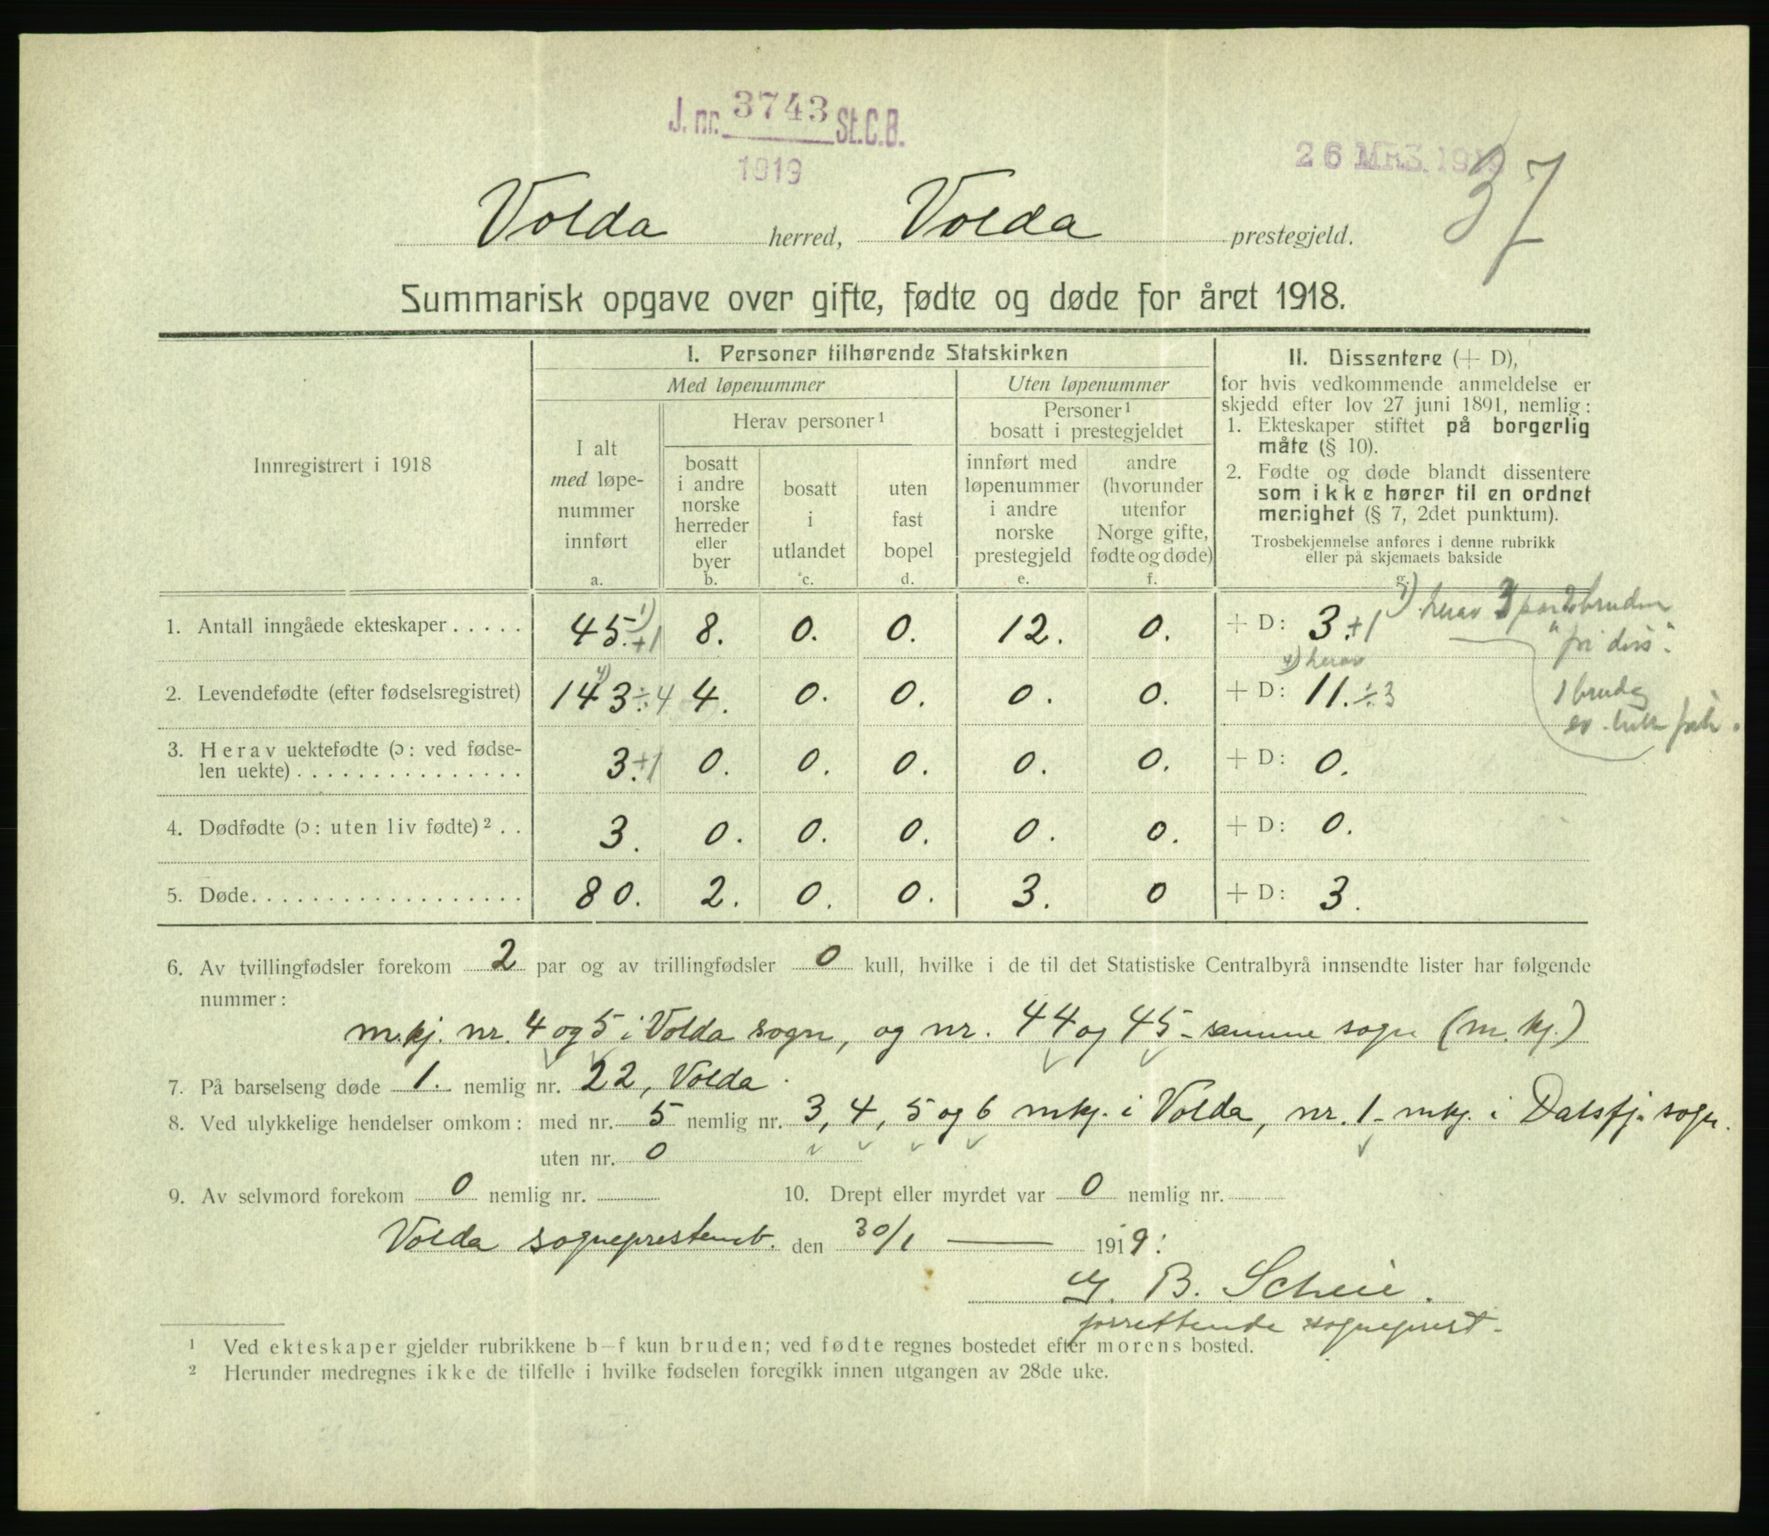 J. nr. 3743 St.C.B.
1919
26 MRS. 1919
37
Volda herred, Volda prestegjeld.
Summarisk opgave over gifte, fødte og døde for året 1918.
Innregistrert i 1918
I. Personer tilhørende Statskirken
Med løpenummer
Uten løpenummer
I alt
med løpe-
nummer
innført
a.
Herav personer¹
bosatt
i andre
norske
herreder
eller
byer
b.
bosatt
i
utlandet
c.
uten
fast
bopel
d.
Personer¹
bosatt i prestegjeldet
innført med
løpenummer
i andre
norske
prestegjeld
e.
andre
(hvorunder
utenfor
Norge gifte,
fødte og døde)
f.
II. Dissentere (+ D),
for hvis vedkommende anmeldelse er
skjedd efter lov 27 juni 1891, nemlig:
1. Ekteskaper stiftet på borgerlig
måte (§ 10).
2. Fødte og døde blandt dissentere
som ikke hører til en ordnet
menighet (§ 7, 2det punktum).
Trosbekjennelse anføres i denne rubrikk
eller på skjemaets bakside
g.
1. Antall inngåede ekteskaper . . . . . 45. 1) +1 8. 0. 0. 12. 0. + D: 3. +1
1) herav 3 par bruden
"fri diss".
1 brud
2. Levendefødte (efter fødselsregistret) 143 ÷4 4. 0. 0. 0. 0. + D: 11. ÷3
herav
3. Herav uektefødte (ɔ: ved fødse-
len uekte) . . . . . . . . . . . . . . . 3. +1 0. 0. 0. 0. 0. + D: 0.
4. Dødfødte (ɔ: uten liv fødte)² . . 3. 0. 0. 0. 0. 0. + D: 0.
5. Døde. . . . . . . . . . . . . . . . . . 80. 2. 0. 0. 3. 0 + D: 3.
6. Av tvillingfødsler forekom 2 par og av trillingfødsler 0 kull, hvilke i de til det Statistiske Centralbyrå innsendte lister har følgende
nummer:
m.kj. nr. 4 og 5 i Volda sogn, og nr. 44 og 45 - samme sogn (m. kj.)
7. På barselseng døde 1. nemlig nr. 22, Volda.
8. Ved ulykkelige hendelser omkom: med nr. 5 nemlig nr. 3, 4, 5 og 6 mkj. i Volda, nr. 1 - mkj. i Dalsfj. sogn.
uten nr. 0
9. Av selvmord forekom 0 nemlig nr.
10. Drept eller myrdet var 0 nemlig nr.
Volda sogneprestemb. den 30/1 1919.
B. Scheie.
forrettende sogneprest.
¹ Ved ekteskaper gjelder rubrikkene b–f kun bruden; ved fødte regnes bostedet efter morens bosted.
² Herunder medregnes ikke de tilfelle i hvilke fødselen foregikk innen utgangen av 28de uke.